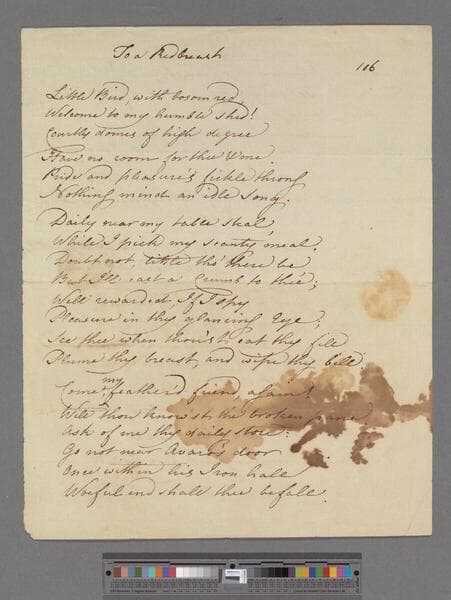 To a Redbreast
106
Little Bird, with bosom red,
Welcome to my humble shed!
Courtly domes of high degree
Have no room for thee & me.
Pride and pleasure's fickle throng
Nothing mind an idle song.
Daily near my table steal,
While I pick my scanty meal.
Doubt not, little tho' there be
But I'll cast a Crumb to thee;
Well rewarded, If I spy
Pleasure in thy glancing Eye;
See thee when thou'st eat thy fill
Plume thy breast, and wipe thy bill.
Come my feather'd friend, again!
Well thou know'st the broken pane
Ask of me thy daily store:
Go not near Avaro's door
Once within his Iron hall
Woeful end shall thee befall.